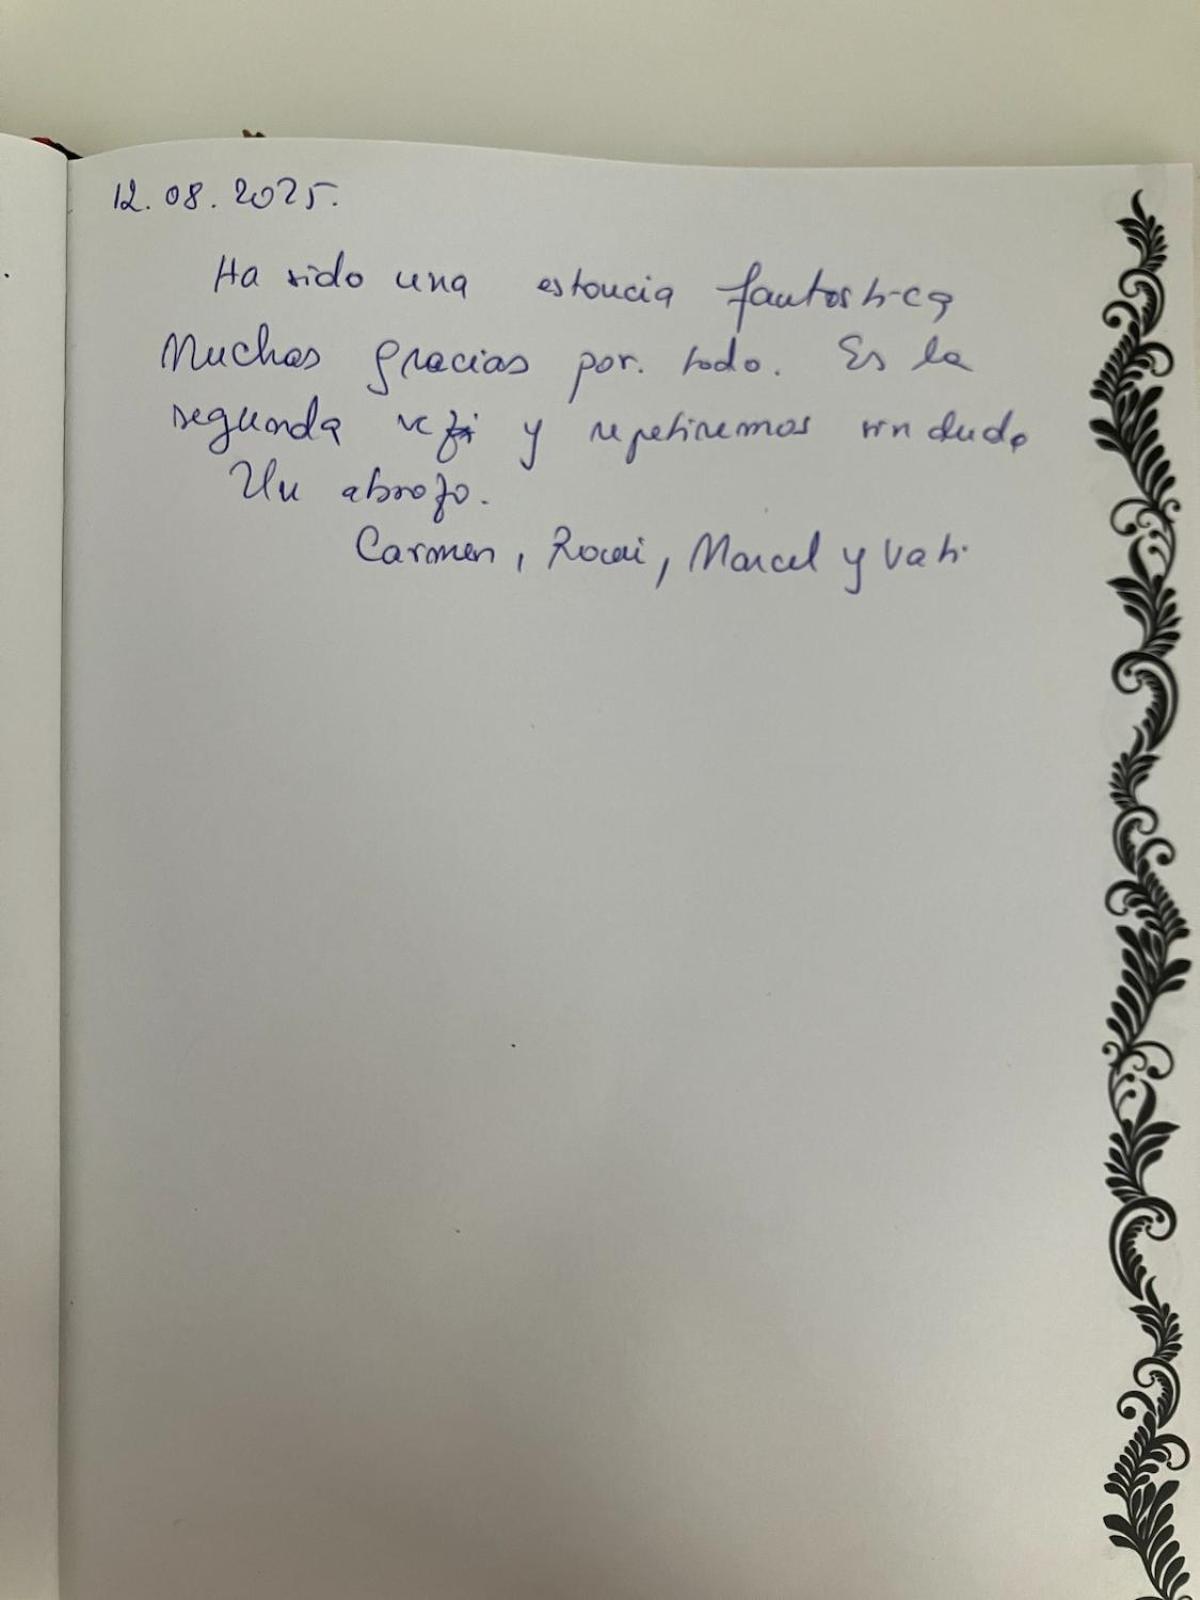 12.08.2025.
Ha sido una estancia fantastica
Muchas gracias por. todo. Es la
segunda vez y repetiremos sin duda
Un abrazo.
Carmen, , Marcel y